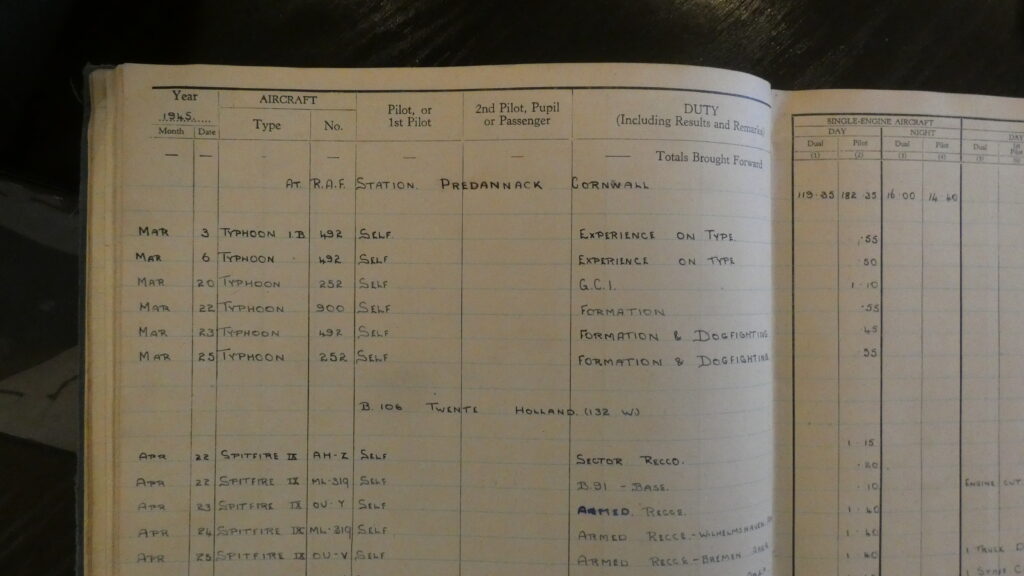 Year AIRCRAFT Pilot, or 1st Pilot 2nd Pilot, Pupil or Passenger DUTY (Including Results and Remarks) SINGLE-ENGINE AIRCRAFT
1945 DAY NIGHT DAY
Month Date Type No. Dual Pilot Dual Pilot Dual
(1) (2) (3) (4) (5)
— — — — — — — Totals Brought Forward
AT R.A.F. STATION. PREDANNACK CORNWALL 119·35 182·35 16·00 14·40
MAR 3 TYPHOON I.B 492 SELF. EXPERIENCE ON TYPE. ·55
MAR 6 TYPHOON 492 SELF EXPERIENCE ON TYPE ·50
MAR 20 TYPHOON 252 SELF G.C.I. 1·10
MAR 22 TYPHOON 900 SELF FORMATION ·55
MAR 23 TYPHOON 492 SELF FORMATION & DOGFIGHTING 45
MAR 25 TYPHOON 252 SELF FORMATION & DOGFIGHTING 55
B.106 TWENTE HOLLAND. (132 W)
APR 22 SPITFIRE IX AH-Z SELF SECTOR RECCO. 1·15
APR 22 SPITFIRE IX ML-319 SELF B.91 - BASE. ·20
·10 ENGINE CUT
APR 23 SPITFIRE IX OU-Y SELF ARMED RECCE. 1·40
APR 24 SPITFIRE IX ML-319 SELF ARMED RECCE - WILHELMSHAVEN 1·40
APR 25 SPITFIRE IX OU-V SELF ARMED RECCE - BREMEN 1·40 1 TRUCK
1 STAFF